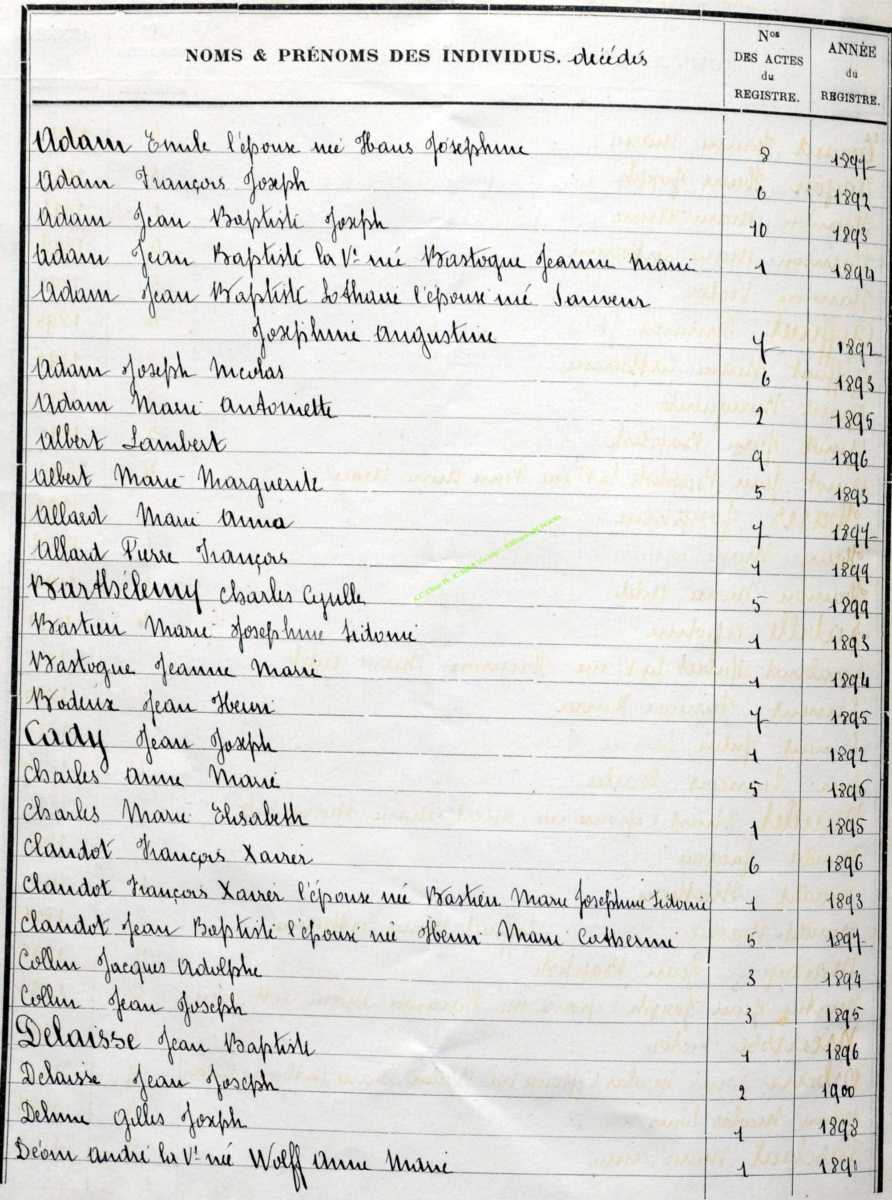 NOMS & PRÉNOMS DES INDIVIDUS. décédés Nos DES ACTES du REGISTRE. ANNÉE du REGISTRE.
Adam Emile l'épouse née Hans Joséphine 8 1897
Adam François Joseph 6 1892
Adam Jean Baptiste Joseph 10 1893
Adam Jean Baptiste la Ve née Bastogne Jeanne Marie 1 1894
Adam Jean Baptiste Lothaire l'épouse née Sauveur
Joséphine Augustine 7 1892
Adam Joseph Nicolas 6 1893
Adam Marie Antoinette 2 1895
Albert Lambert 9 1896
Albert Marie Marguerite 5 1893
Allard Marie Anna 7 1897
Allard Pierre François 1 1899
Barthélemy Charles Cyrille 5 1899
Bastien Marie Josephine Sidonie 1 1893
Bastogne Jeanne Marie 1 1894
Bodeux Jean Henri 7 1895
Cady Jean Joseph 1 1892
Charles Anne Marie 5 1895
Charles Marie Elisabeth 1 1895
Claudot François Xavier 6 1896
Claudot François Xavier l'épouse née Bastien Marie Josephine Sidonie 1 1893
Claudot Jean Baptiste l'épouse née Henri Marie Catherine 5 1897
Collin Jacques Adolphe 3 1894
Collin Jean Joseph 3 1895
Delaisse Jean Baptiste 1 1896
Delaisse Jean Joseph 2 1900
Gilles Joseph 1 1898
Déom André la Ve née Wolff Anne Marie 1 1891